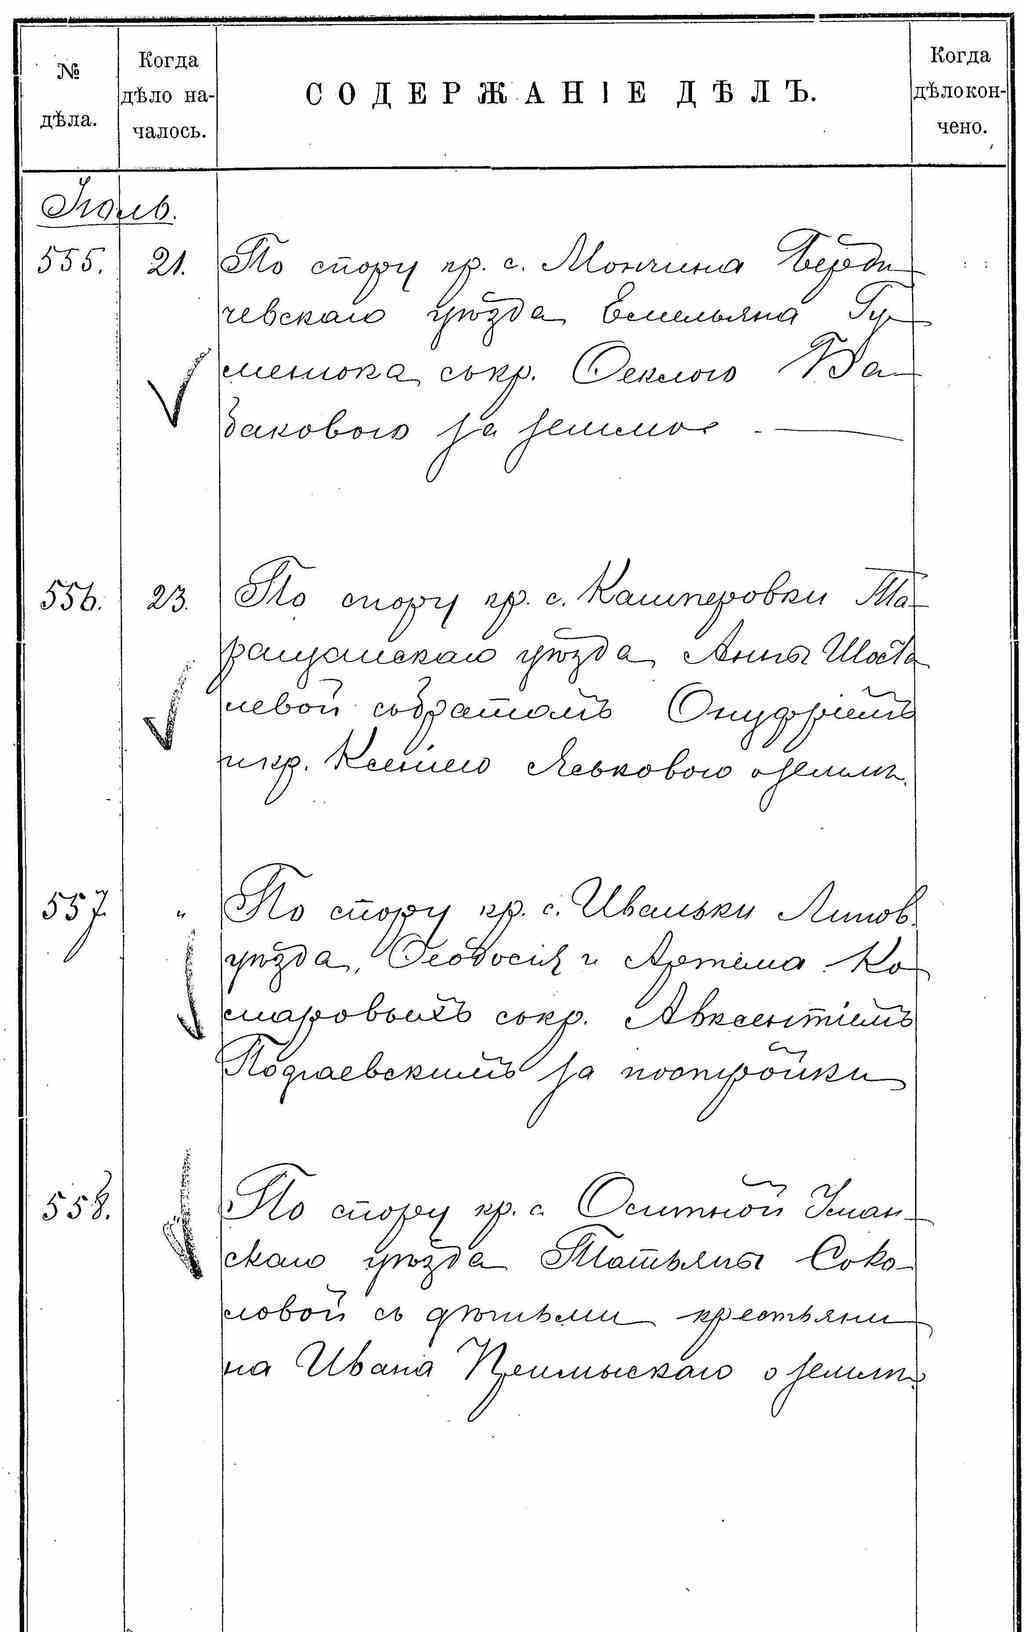 № дѣла.
Когда дѣло на-
чалось.
СОДЕРЖАНІЕ ДѢЛЪ.
Когда
дѣло кон-
чено.
Іюль.
555. 21. По спору кр. с. Мончина Берди-
чевскаго уѣзда Емельяна Гу-
менюка съ кр. Ѳеклою Ба-
баковою за землю
556. 23. По спору кр. с. Кашперовки Та-
ращанскаго уѣзда Анны Шоста
левой съ братомъ Онуфріемъ
и кр. Ксеніею Яськовою о землѣ.
557. " По спору кр. с. Иваньки Липов.
уѣзда, Ѳеодосія и Артема Ко
маровыхъ съ кр. Авксентіемъ
Подгаевскимъ за постройки
558. По спору кр. с. Оситной Уман-
скаго уѣзда Татьяны Соко-
ловой съ дѣтьми крестьяни
на Ивана о землѣ.